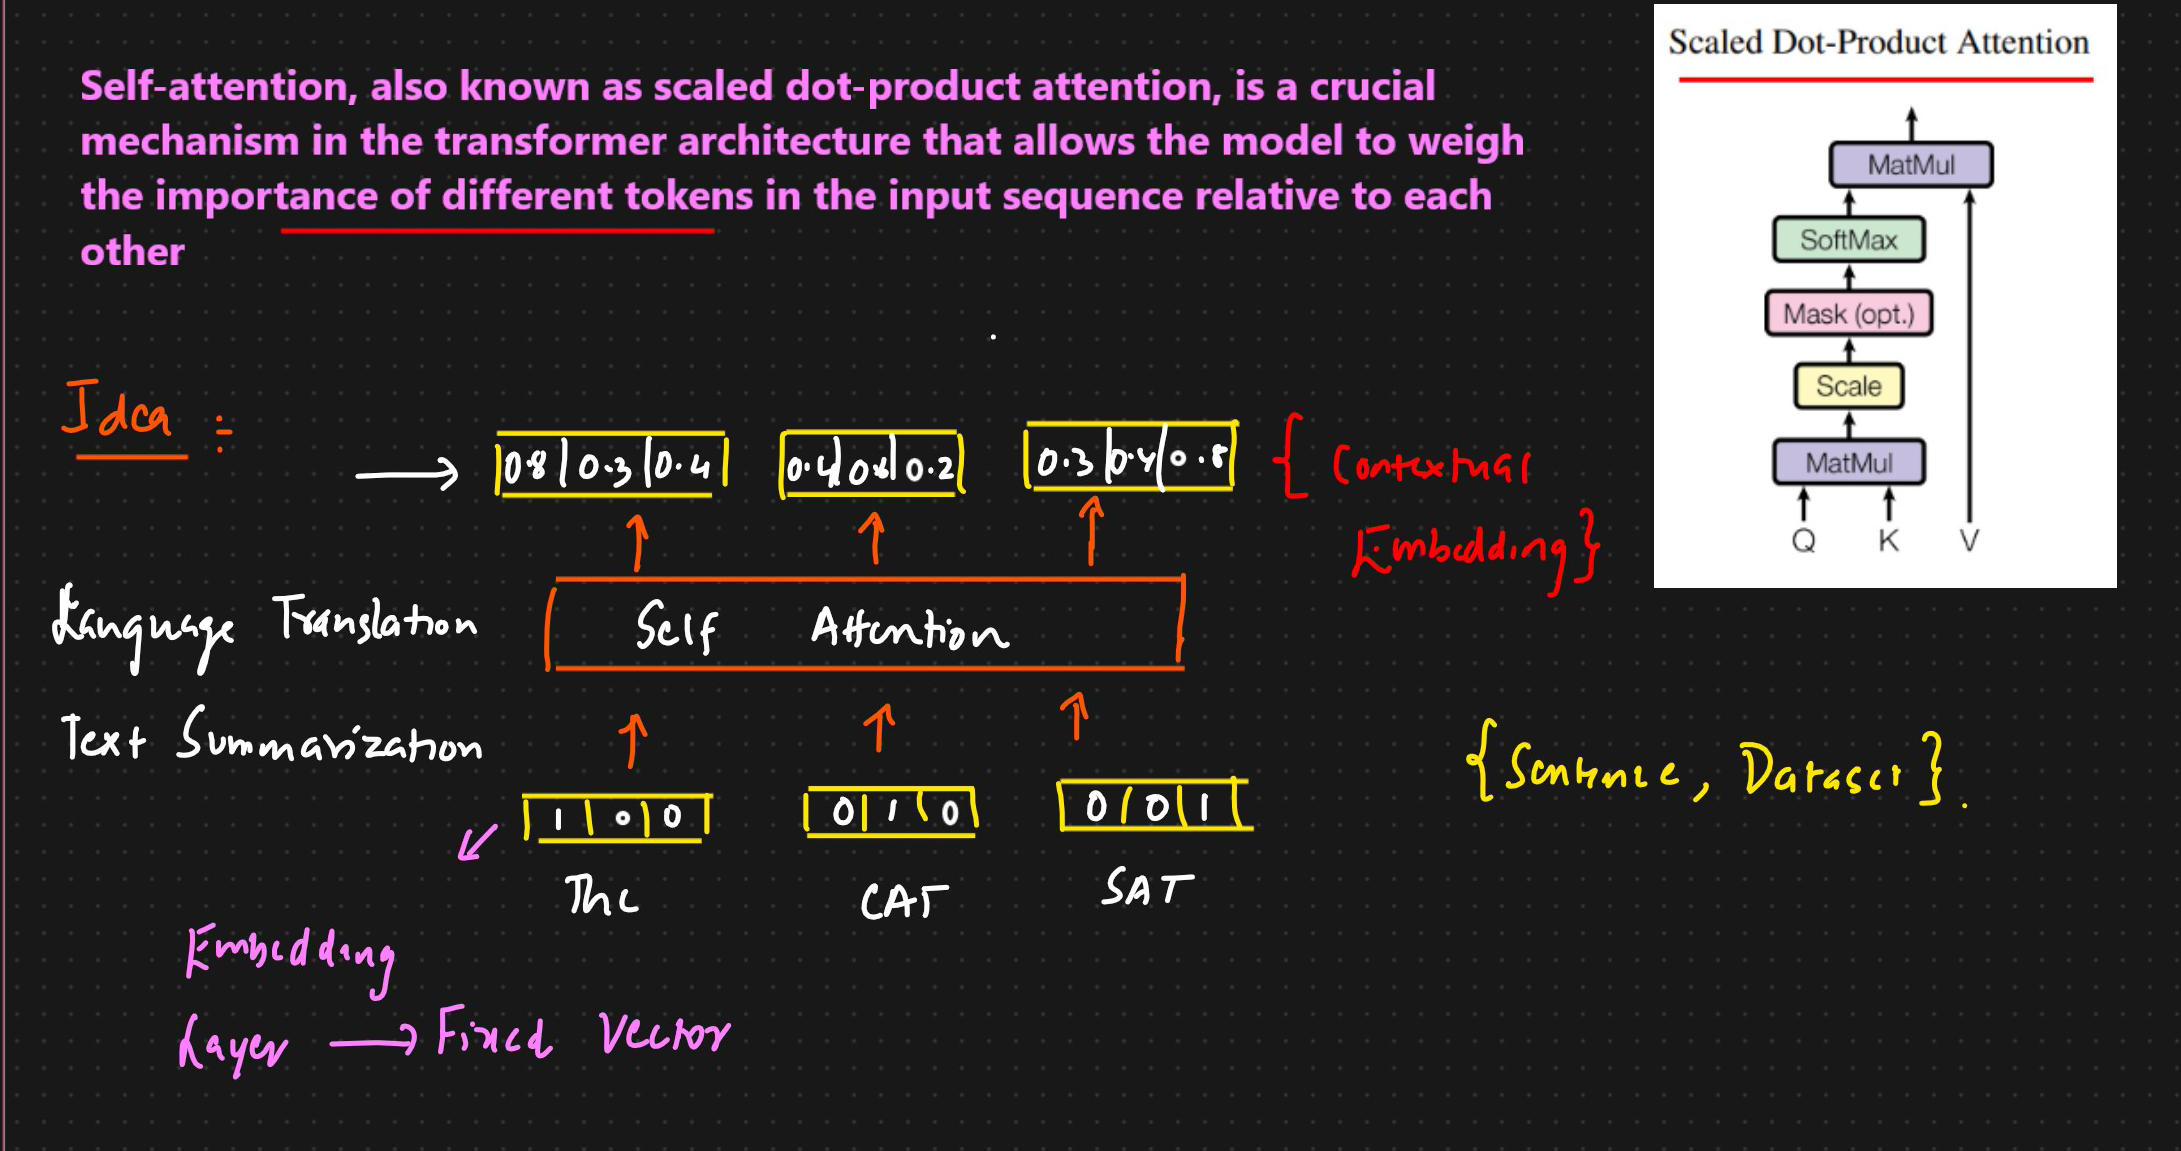 Self-attention, also known as scaled dot-product attention, is a crucial
mechanism in the transformer architecture that allows the model to weigh
the importance of different tokens in the input sequence relative to each
other
Scaled Dot-Product Attention
MatMul
SoftMax
Mask (opt.)
Scale
MatMul
Q K V
Idea :
0.8 0.3 0.4
0.4 0.6 0.2
0.3 0.4 0.8
{ Contextual
Embedding }
Language Translation
Self Attention
Text Summarization
{Sentence, Dataset}.
1 0 0
0 1 0
0 0 1
The CAT SAT
Embedding
Layer → Fixed Vector